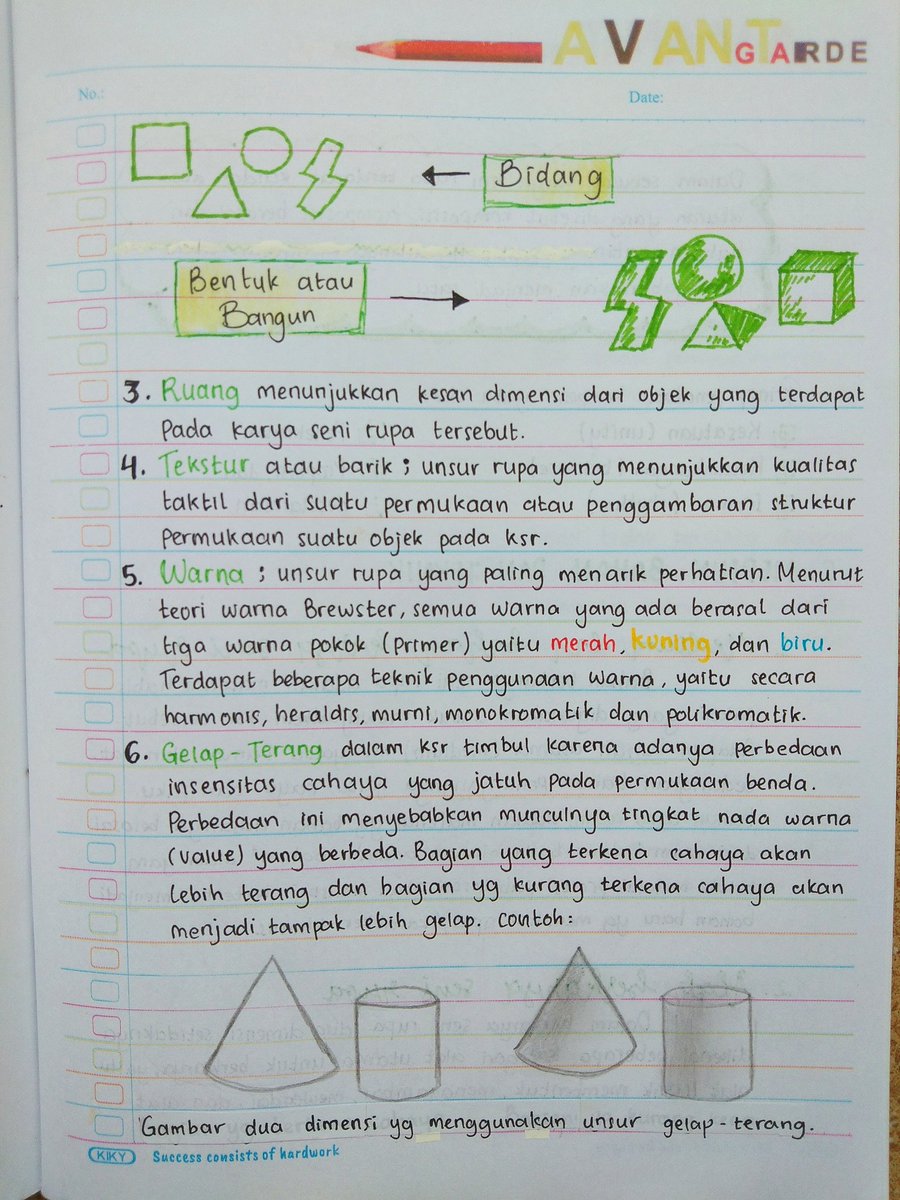 AVANTGARDE
No.:
Date:
Bidang
Bentuk atau
Bangun
3. Ruang menunjukkan kesan dimensi dari objek yang terdapat
Pada karya seni rupa tersebut.
4. Tekstur atau barik ; unsur rupa yang menunjukkan kualitas
taktil dari suatu permukaan atau penggambaran struktur
Permukaan suatu objek pada ksr.
5. Warna ; unsur rupa yang paling menarik perhatian. Menurut
teori warna Brewster, semua warna yang ada berasal dari
tiga warna pokok (primer) yaitu merah, kuning, dan biru.
Terdapat beberapa teknik penggunaan warna, yaitu secara
harmonis, heraldis, murni, monokromatik dan polikromatik.
6. Gelap-Terang dalam ksr timbul karena adanya perbedaan
insensitas cahaya yang jatuh pada permukaan benda.
Perbedaan ini menyebabkan munculnya tingkat nada warna
(value) yang berbeda. Bagian yang terkena cahaya akan
lebih terang dan bagian yg kurang terkena cahaya akan
menjadi tampak lebih gelap. Contoh:
Gambar dua dimensi yg menggunakan unsur gelap-terang.
KIKY Success consists of hardwork